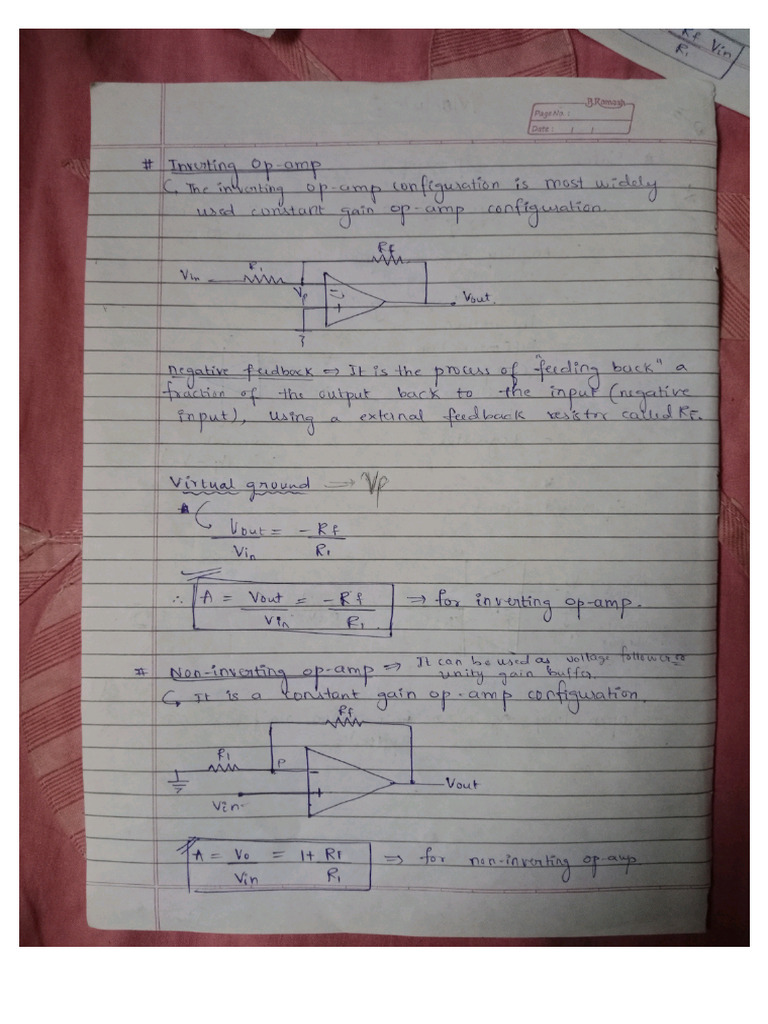 Rf Vin
R1
B.Ramesh
Page No. :
Date : / /
# Inverting Op-amp
The inverting op-amp configuration is most widely
used constant gain op-amp configuration.
Rf
Vin R1
Vp - Vout.
+
negative feedback ⇒ It is the process of "feeding back" a
fraction of the output back to the input (negative
input), using a external feedback resistor called RF.
Virtual ground → Vp
Vout = -Rf
Vin R1
∴ A = Vout = -Rf ⇒ for inverting op-amp.
Vin R1.
# Non-inverting op-amp ⇒ It can be used as voltage follower or
unity gain buffer.
It is a constant gain op-amp configuration.
Rf
R1 P -
Vin. + Vout
A = Vo = 1+ Rf ⇒ for non-inverting op-amp
Vin R1